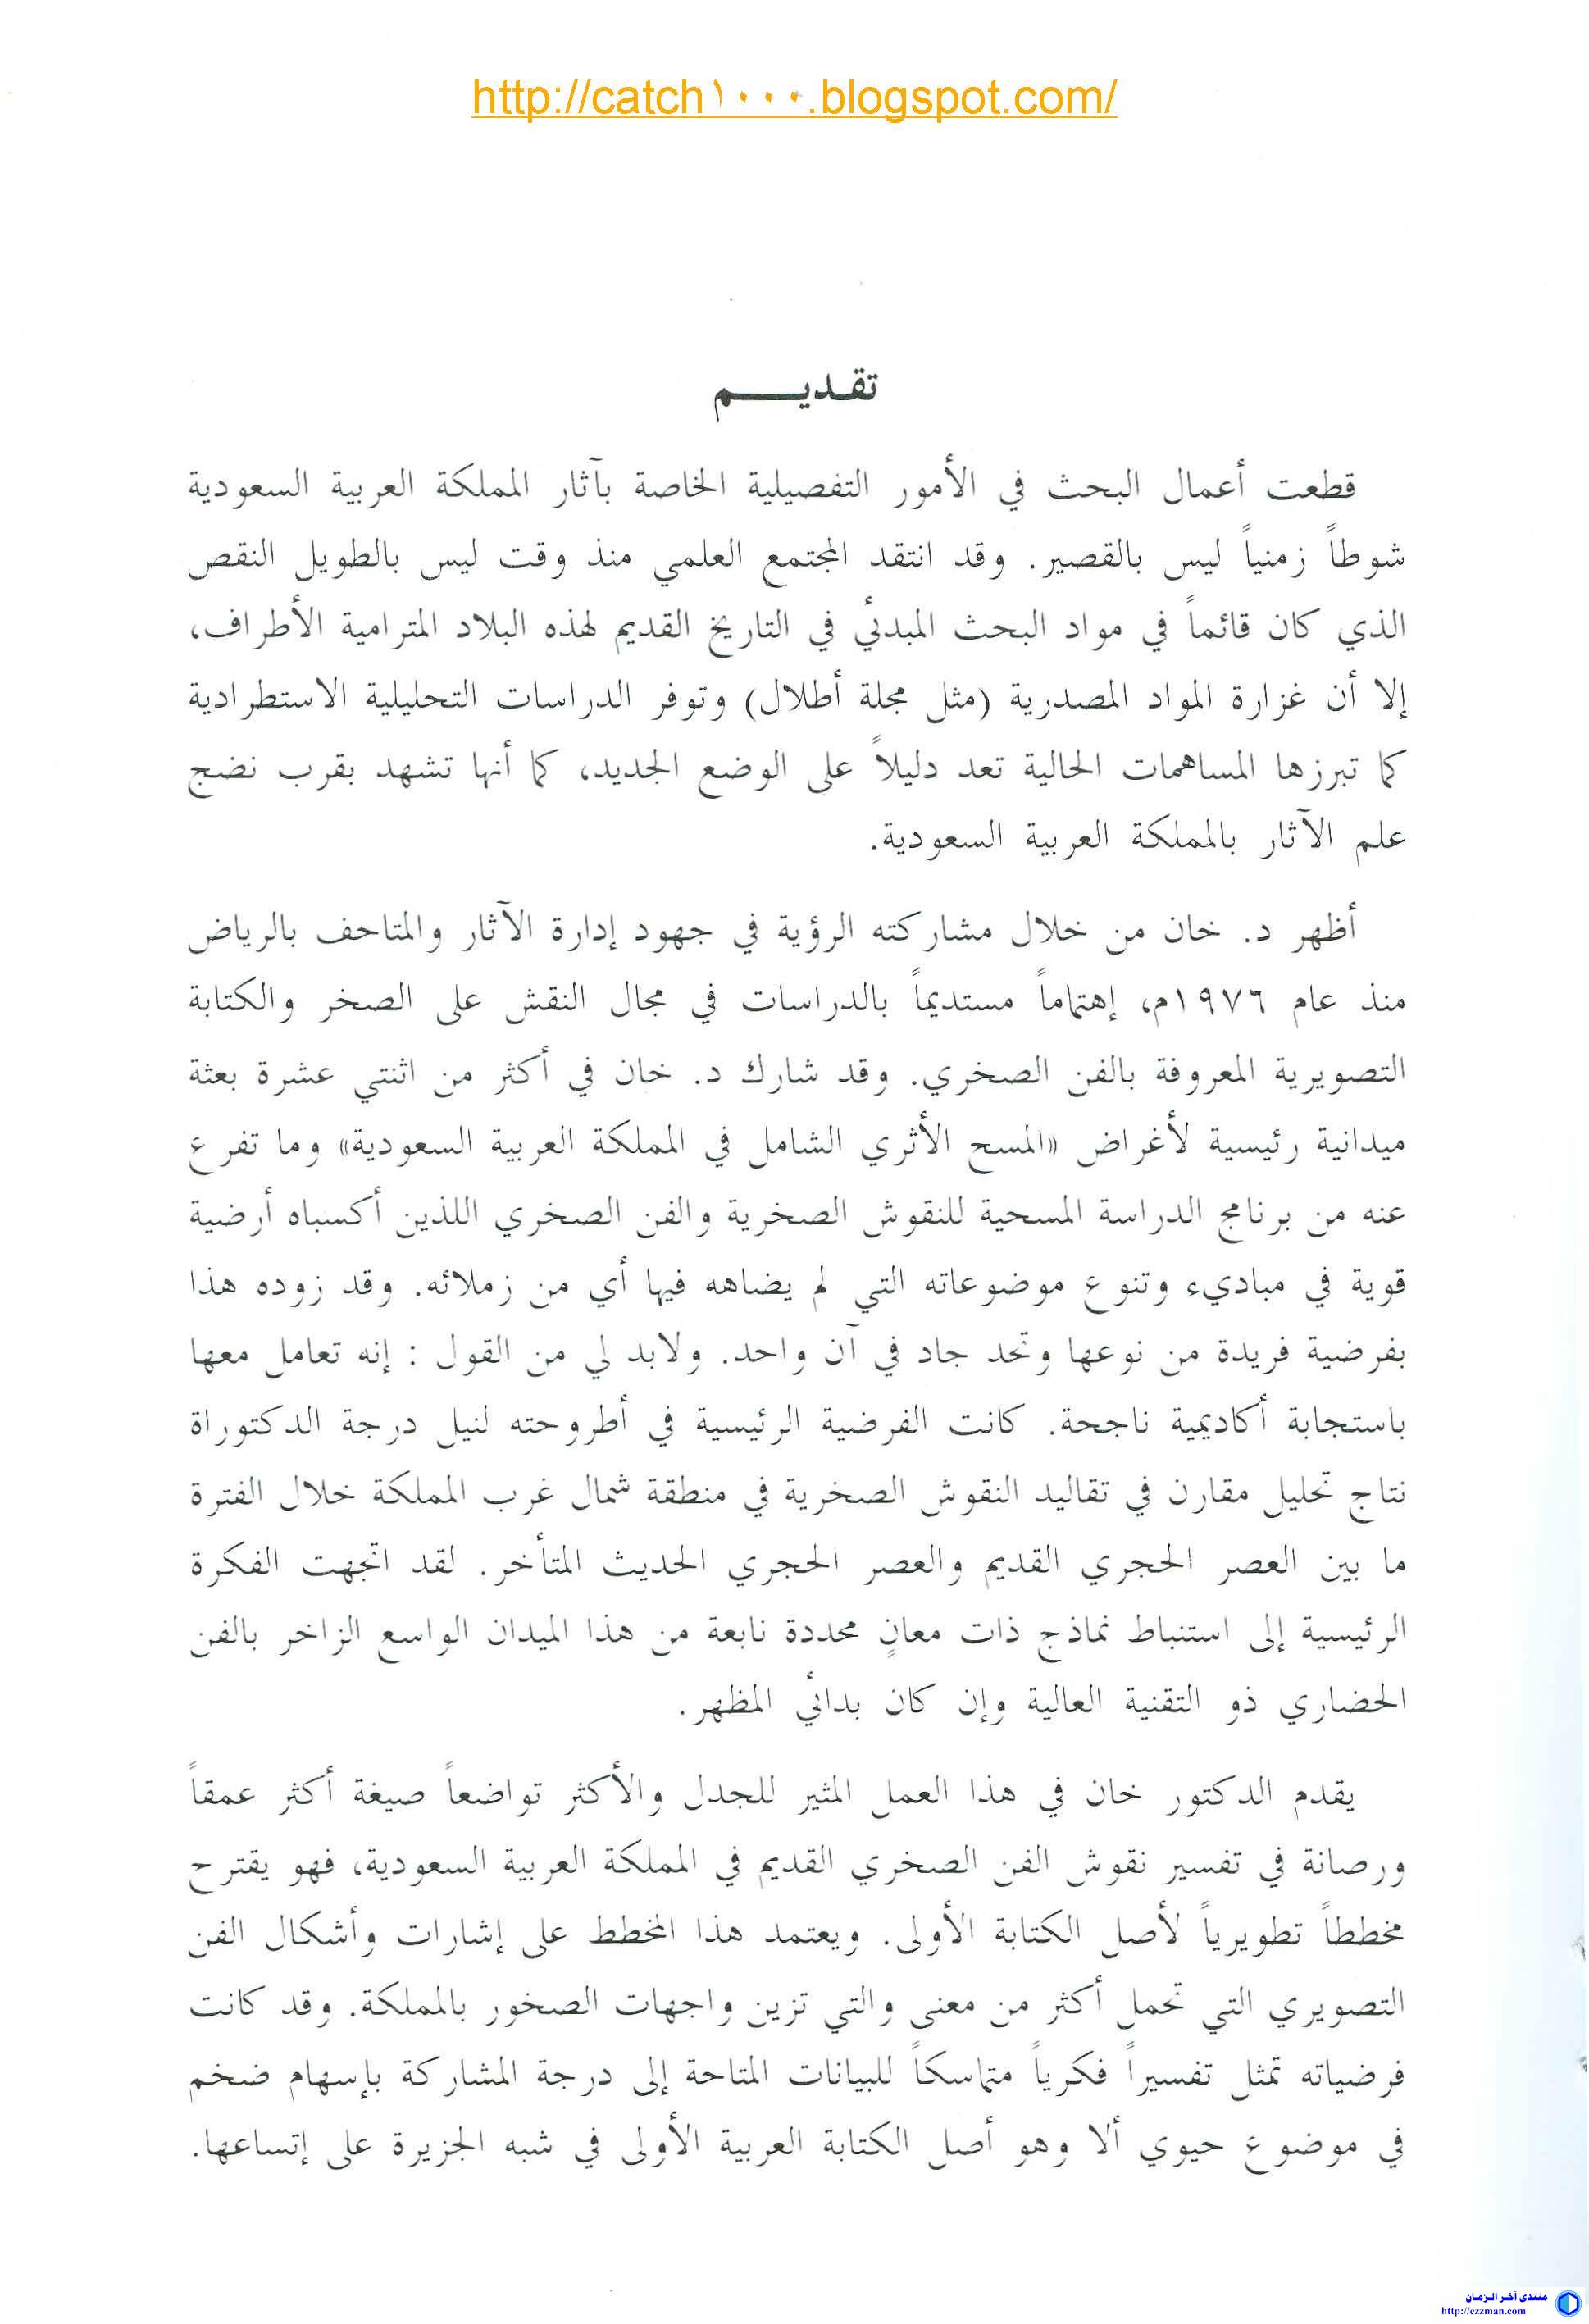 http://catch١٠٠٠.blogspot.com/
تقديم
قطعت أعمال البحث في الأمور التفصيلية الخاصة بآثار المملكة العربية السعودية
شوطاً زمنياً ليس بالقصير. وقد انتقد المجتمع العلمي منذ وقت ليس بالطويل النقص
الذي كان قائماً في مواد البحث المبدئي في التاريخ القديم لهذه البلاد المترامية الأطراف،
إلا أن غزارة المواد المصدرية (مثل مجلة أطلال) وتوفر الدراسات التحليلية الاستطرادية
كما تبرزها المساهمات الحالية تعد دليلاً على الوضع الجديد، كما أنها تشهد بقرب نضج
علم الآثار بالمملكة العربية السعودية.
أظهر د. خان من خلال مشاركته الرؤية في جهود إدارة الآثار والمتاحف بالرياض
منذ عام ١٩٧٦م، إهتماماً مستديماً بالدراسات في مجال النقش على الصخر والكتابة
التصويرية المعروفة بالفن الصخري. وقد شارك د. خان في أكثر من اثنتي عشرة بعثة
ميدانية رئيسية لأغراض «المسح الأثري الشامل في المملكة العربية السعودية» وما تفرع
عنه من برنامج الدراسة المسحية للنقوش الصخرية والفن الصخري اللذين أكسباه أرضية
قوية في مباديء وتنوع موضوعاته التي لم يضاهه فيها أي من زملائه. وقد زوده هذا
بفرضية فريدة من نوعها وتحد جاد في آن واحد. ولابد لي من القول : إنه تعامل معها
باستجابة أكاديمية ناجحة. كانت الفرضية الرئيسية في أطروحته لنيل درجة الدكتوراة
نتاج تحليل مقارن في تقاليد النقوش الصخرية في منطقة شمال غرب المملكة خلال الفترة
ما بين العصر الحجري القديم والعصر الحجري الحديث المتأخر. لقد اتجهت الفكرة
الرئيسية إلى استنباط نماذج ذات معانٍ محددة نابعة من هذا الميدان الواسع الزاخر بالفن
الحضاري ذو التقنية العالية وإن كان بدائي المظهر.
يقدم الدكتور خان في هذا العمل المثير للجدل والأكثر تواضعاً صيغة أكثر عمقاً
ورصانة في تفسير نقوش الفن الصخري القديم في المملكة العربية السعودية، فهو يقترح
مخططاً تطويرياً لأصل الكتابة الأولى. ويعتمد هذا المخطط على إشارات وأشكال الفن
التصويري التي تحمل أكثر من معنى والتي تزين واجهات الصخور بالمملكة. وقد كانت
فرضياته تمثل تفسيراً فكرياً متماسكاً للبيانات المتاحة إلى درجة المشاركة بإسهام ضخم
في موضوع حيوي ألا وهو أصل الكتابة العربية الأولى في شبه الجزيرة على إتساعها.
منتدى آخر الزمان
http://ezzman.com